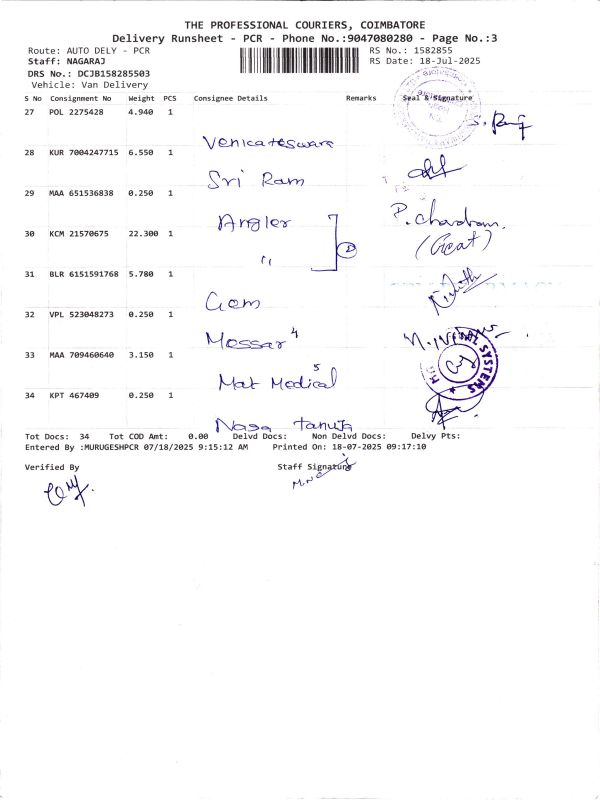 THE PROFESSIONAL COURIERS, COIMBATORE
Delivery Runsheet - PCR - Phone No.:9047080280 - Page No.:3
Route: AUTO DELY - PCR RS No.: 1582855
Staff: NAGARAJ RS Date: 18-Jul-2025
DRS No.: DCJB158285503
Vehicle: Van Delivery
S No Consignment No Weight PCS Consignee Details Remarks Seal & Signature
27 POL 2275428 4.940 1
Venkateswara
28 KUR 7004247715 6.550 1
Sri Ram
29 MAA 651536838 0.250 1
Angler P. Chandran.
30 KCM 21570675 22.300 1
" 2 (Geat)
31 BLR 6151591768 5.780 1
Gem
32 VPL 523048273 0.250 1
Messar 4
33 MAA 709460640 3.150 1
SYSTEMS
Mat Medical 5
34 KPT 467409 0.250 1
Naga Tanuja
Tot Docs: 34 Tot COD Amt: 0.00 Delvd Docs: Non Delvd Docs: Delvy Pts:
Entered By :MURUGESHPCR 07/18/2025 9:15:12 AM Printed On: 18-07-2025 09:17:10
Verified By Staff Signature